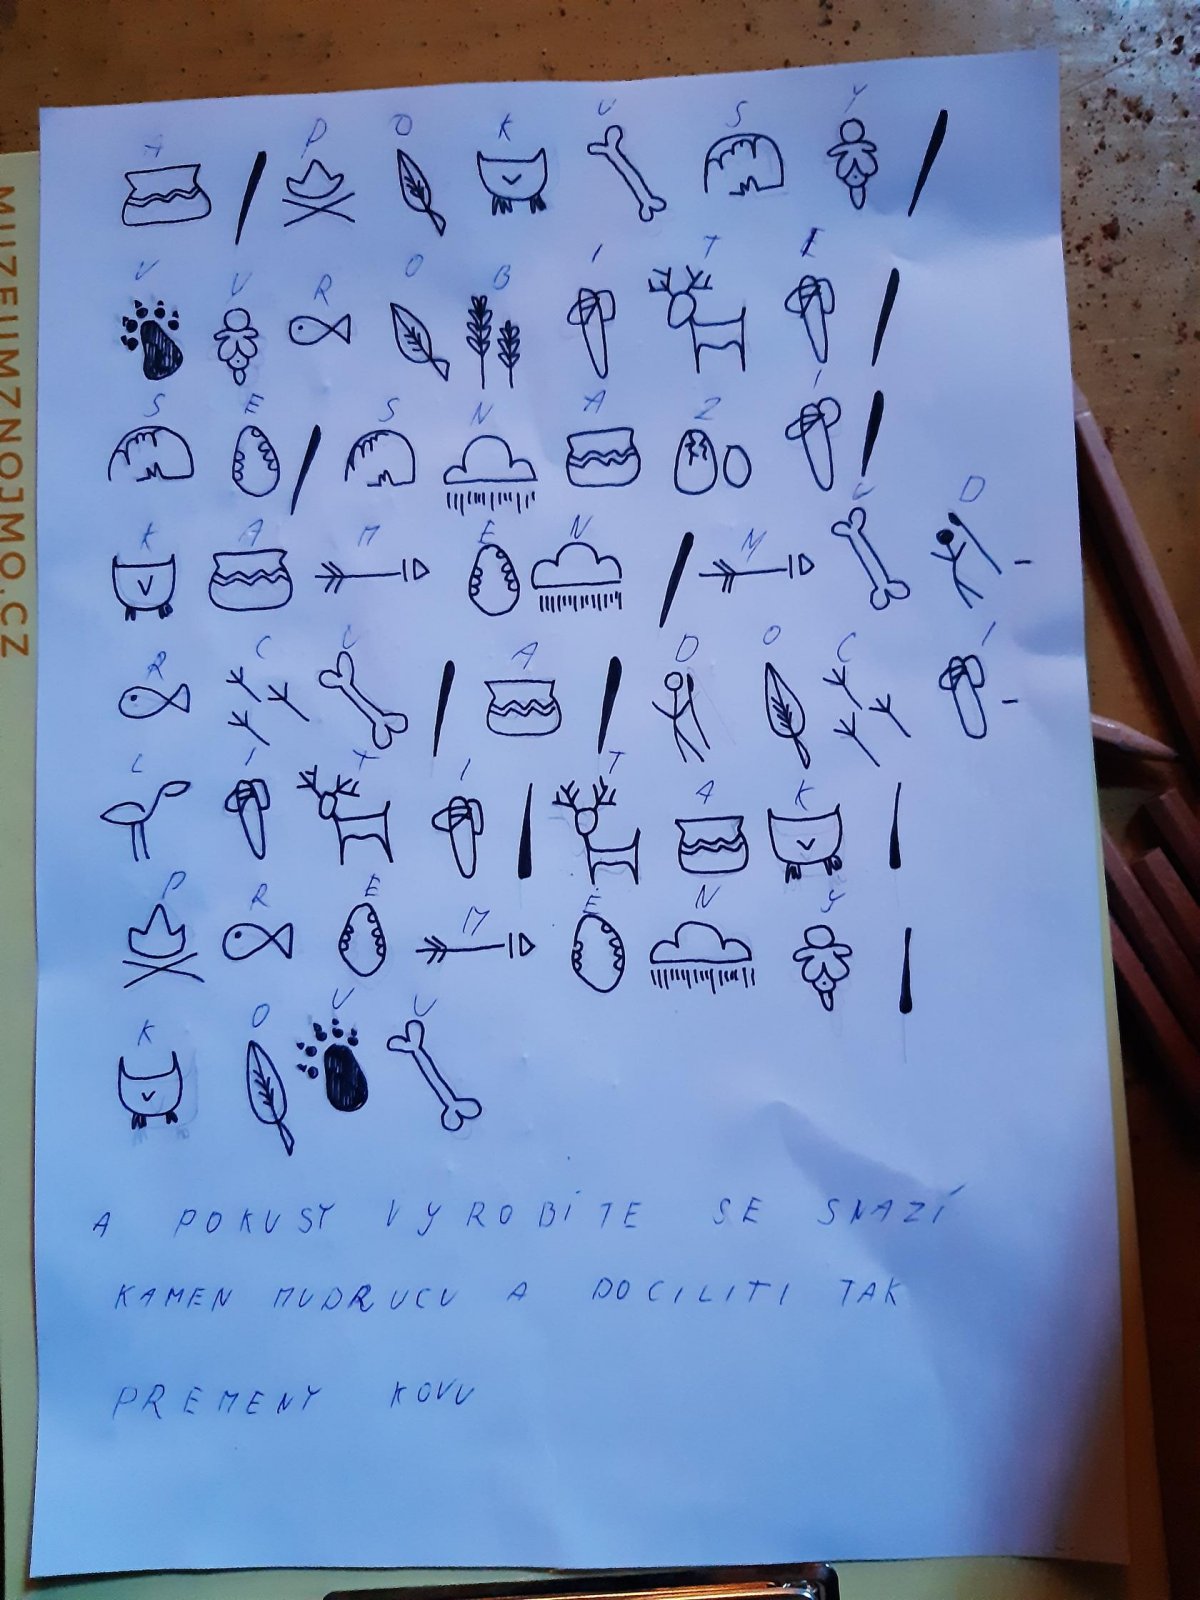 MUZEUMZNOJMO.CZ
A P O K U S Y
V Y R O B I T E
S E S N A Z I
K A M E N M U D -
R C U A D O C I -
L I T I T A K
P R E M E N Y
K O V U
A POKUSY VYROBÍTE SE SNAZÍ
KAMEN MUDRUCU A DOCILITI TAK
PREMENY KOVU